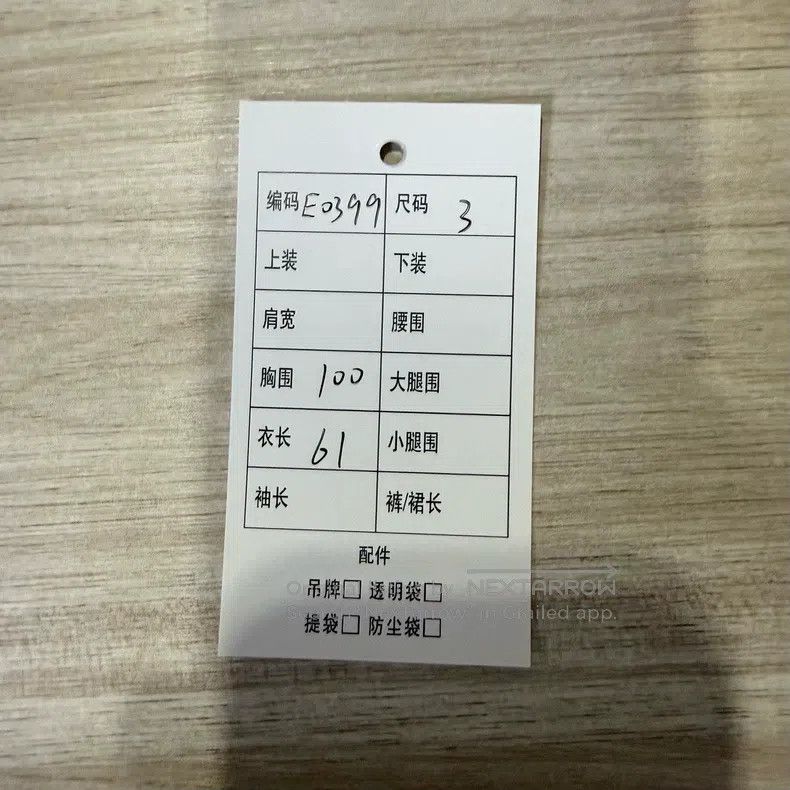 编码 E0399 尺码 3
上装 下装
肩宽 腰围
胸围 100 大腿围
衣长 61 小腿围
袖长 裤/裙长
配件
吊牌□ 透明袋□
提袋□ 防尘袋□
NEXTARROW
in Grailed app.